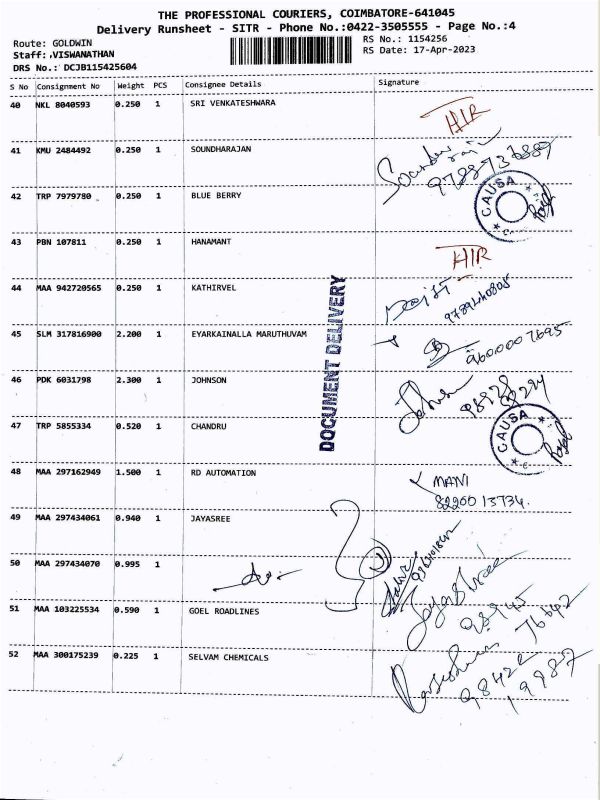 THE PROFESSIONAL COURIERS, COIMBATORE-641045
Delivery Runsheet - SITR - Phone No.:0422-3505555 - Page No.:4
Route: GOLDWIN
Staff: .VISWANATHAN
DRS No.: DCJB115425604
RS No.: 1154256
RS Date: 17-Apr-2023
S No Consignment No Weight PCS Consignee Details Signature
40 NKL 8040593 0.250 1 SRI VENKATESHWARA
41 KMU 2484492 0.250 1 SOUNDHARAJAN
42 TRP 7979780 0.250 1 BLUE BERRY CAUSA
43 PBN 107811 0.250 1 HANAMANT
44 MAA 942720565 0.250 1 KATHIRVEL
45 SLM 317816900 2.200 1 EYARKAINALLA MARUTHUVAM 9600007695
46 PDK 6031798 2.300 1 JOHNSON
47 TRP 5855334 0.520 1 CHANDRU CAUSA
48 MAA 297162949 1.500 1 RD AUTOMATION MANI
8220013734
49 MAA 297434061 0.940 1 JAYASREE
50 MAA 297434070 0.995 1
51 MAA 103225534 0.590 1 GOEL ROADLINES
52 MAA 300175239 0.225 1 SELVAM CHEMICALS
DOCUMENT DELIVERY